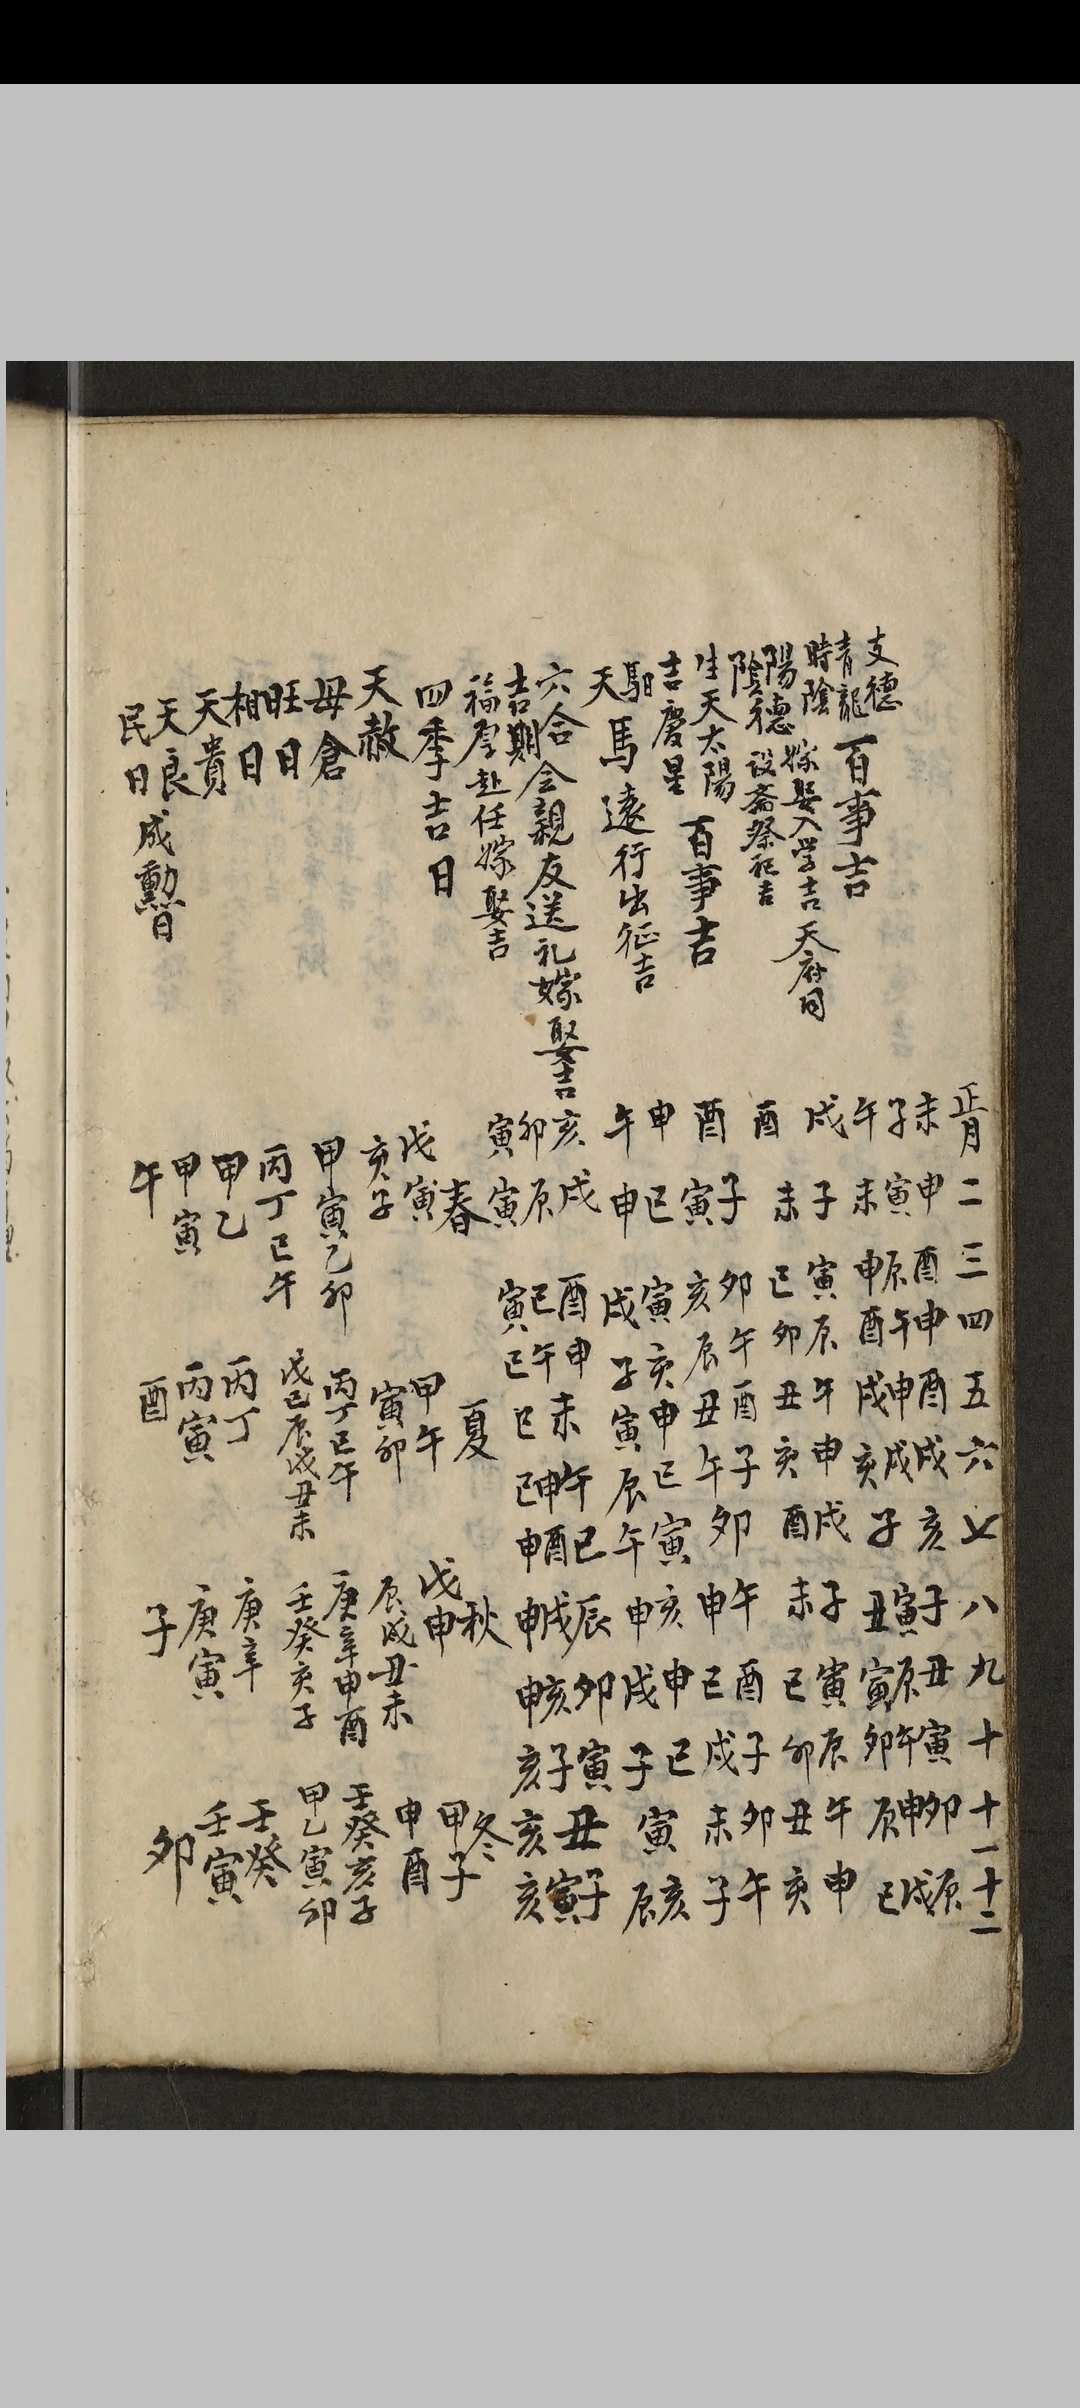 正月 二 三 四 五 六 七 八 九 十 十一 十二
支德 未 申 酉 申 酉 戌 亥 子 丑 寅 卯 辰
青龍 百事吉 子 寅 辰 午 申 戌 寅 辰 午 申 戌
時陰 嫁娶入学吉 天府同 午 未 申 酉 戌 亥 子 丑 寅 卯 辰 巳
陽德 戌 子 寅 辰 午 申 戌 子 寅 辰 午 申
陰德 設斎祭祀吉 酉 未 巳 卯 丑 亥 酉 未 巳 卯 丑 亥
生天太陽 百事吉 酉 子 卯 午 酉 子 卯 午 酉 子 卯 午
吉慶星 寅 亥 辰 丑 午 申 巳 戌 未 子
馹 申 巳 寅 亥 申 巳 寅 亥 申 巳 寅 亥
天馬 遠行出征吉 午 申 戌 子 寅 辰 午 申 戌 子 寅 辰
六合 会親友送礼嫁娶吉 亥 戌 酉 申 未 午 巳 辰 卯 寅 丑 子
吉期 卯 辰 巳 午 申 酉 戌 亥 子 寅
福厚 赴任嫁娶吉 寅 寅 寅 巳 巳 巳 申 申 申 亥 亥 亥
四季吉日 春 夏 秋 冬
天赦 戊寅 甲午 戊申 甲子
母倉 亥子 寅卯 辰戌丑未 申酉
旺日 甲寅乙卯 丙丁巳午 庚辛申酉 壬癸亥子
相日 丙丁巳午 戊己辰戌丑未 壬癸亥子 甲乙寅卯
天貴 甲乙 丙丁 庚辛 壬癸
天良 成勳日 甲寅 丙寅 庚寅 壬寅
民日 午 酉 子 卯